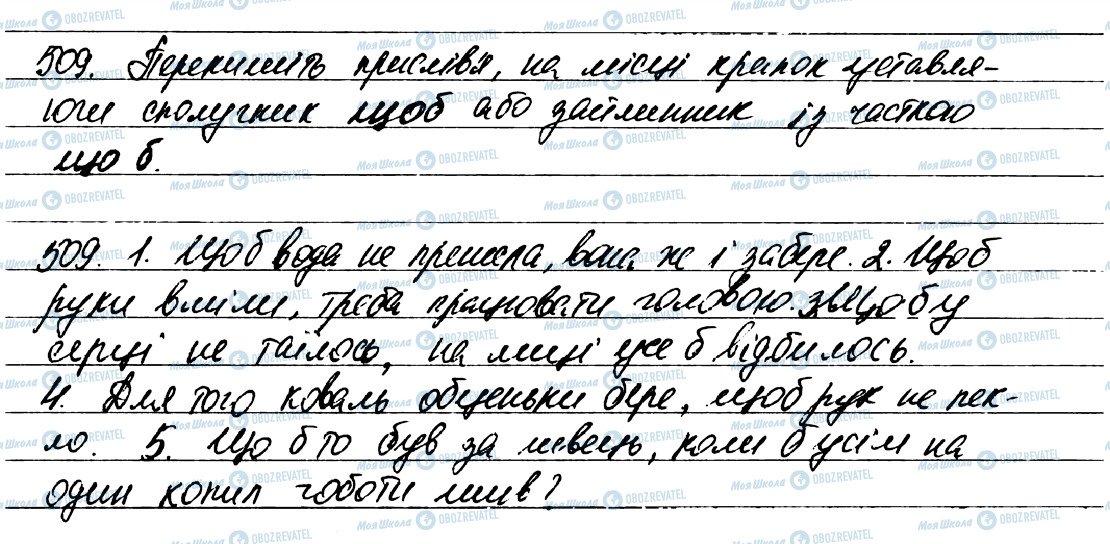 509. Перепишіть прислів'я, на місці крапок уставля-
ючи сполучник щоб або займенник із часткою
що б.
509. 1. Що б вода не принесла, вона ж і забере. 2. Щоб
руки вміли, треба працювати головою. 3. Що б у
серці не таїлось, на лиці уже б відбилось.
4. Для того коваль обценьки бере, щоб рук не пек-
ло. 5. Що б то був за швець, коли б усім на
один копил чоботи шив?